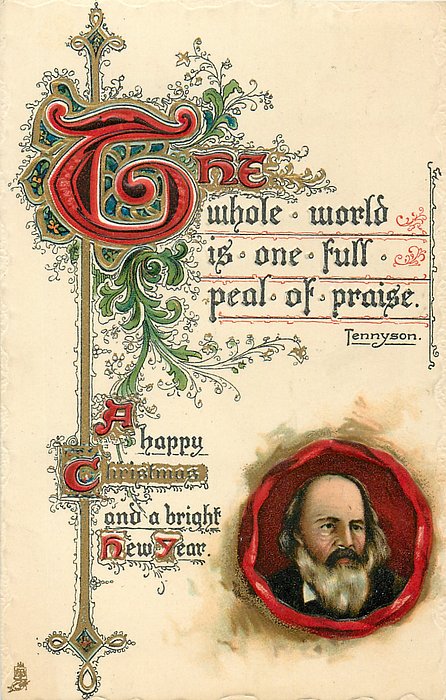 The
whole · world
is · one · full ·
peal · of · praise.
Tennyson.
A
happy
Christmas
and a bright
New Year.